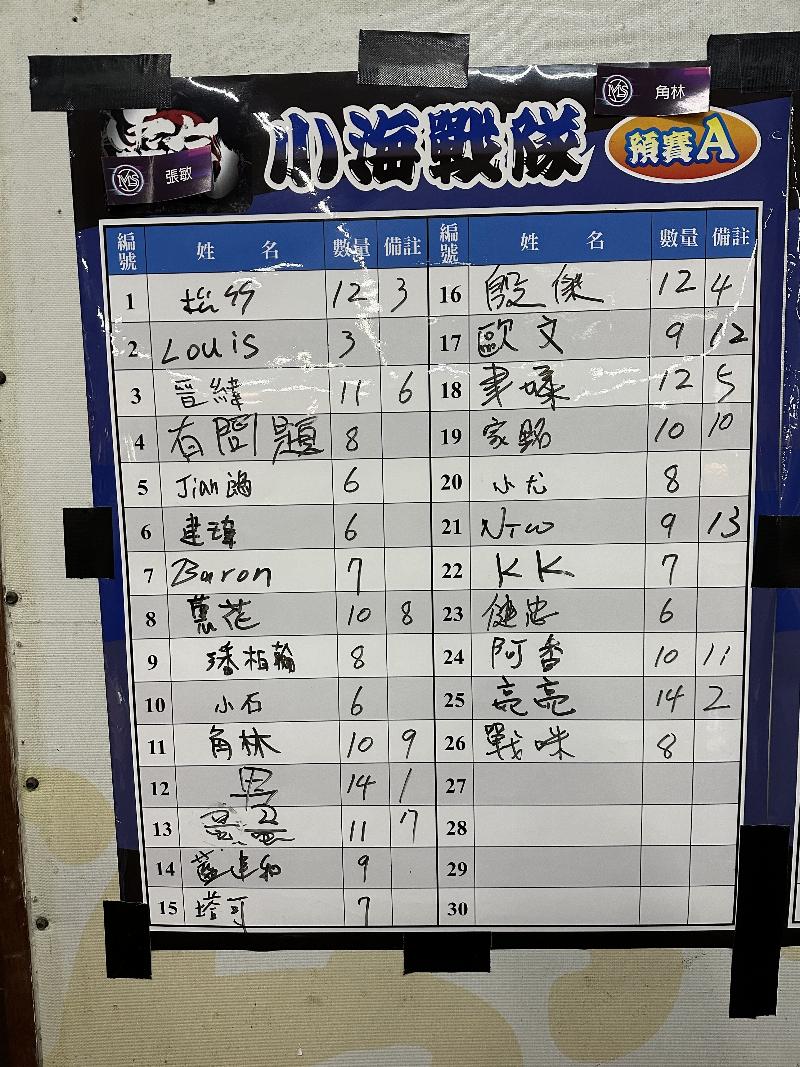 MS 角林
MS 張敏
小海戰隊 預賽A
編號 姓名 數量 備註 編號 姓名 數量 備註
1 12 3 16 殷傑 12 4
2 Louis 3 17 歐文 9 12
3 晉緯 11 6 18 12 5
4 有問題 8 19 家銘 10 10
5 Jian 6 20 小尤 8
6 建瑋 6 21 NTW 9 13
7 Baron 7 22 KK 7
8 蔥花 10 8 23 健忠 6
9 潘柏翰 8 24 阿香 10 11
10 小石 6 25 亮亮 14 2
11 角林 10 9 26 戰咪 8
12 14 1 27
13 11 7 28
14 9 29
15 塔哥 7 30